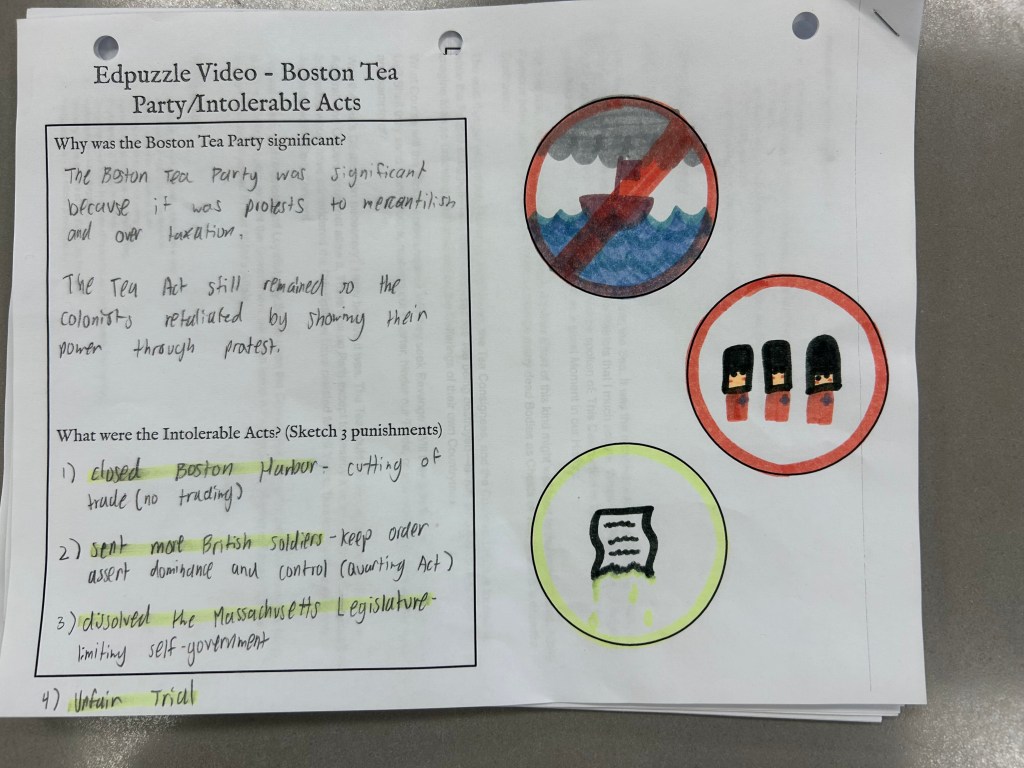 Edpuzzle Video - Boston Tea
Party/Intolerable Acts
Why was the Boston Tea Party significant?
The Boston Tea Party was significant
because it was protests to mercantilish
and over taxation.
The Tea Act still remained so the
colonists retaliated by showing their
power through protest.
What were the Intolerable Acts? (Sketch 3 punishments)
1) closed Boston Harbor - cutting of
trade (no trading)
2) sent more British soldiers - keep order
assert dominance and control (avarting Act)
3) dissolved the Massachusetts Legislature -
limiting self-government
4) Unfair Trial